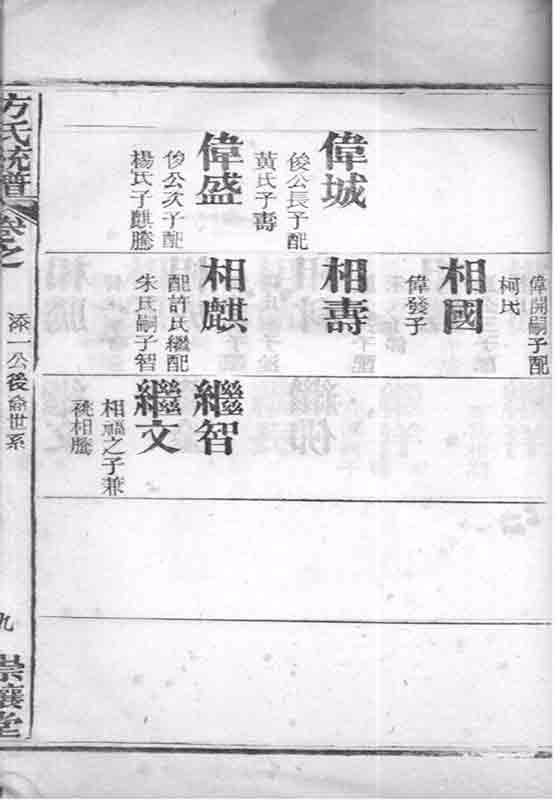 偉城
俊公長子配
黃氏子壽
偉盛
俊公次子配
楊氏子麒騰
偉開嗣子配
柯氏
相國
偉發子
相壽
相麒
配許氏繼配
朱氏嗣子智
繼智
繼文
相福之子兼
祧相騰
方氏統譜
卷之
添一公後裔世系
九
崇讓堂